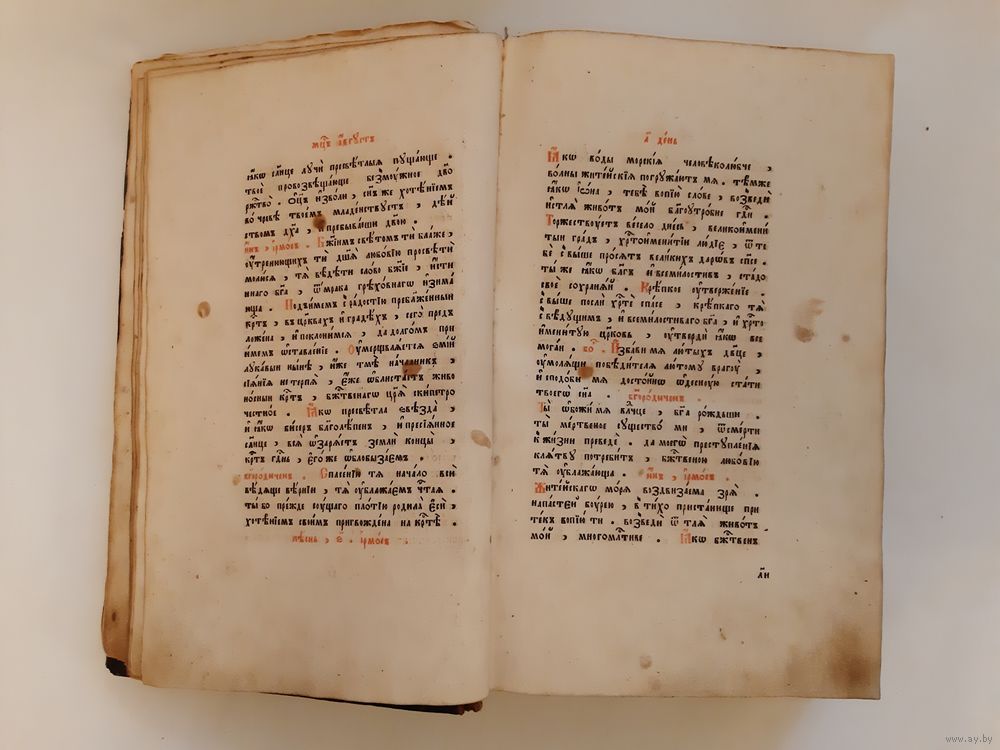 мцъ а҆́вгустъ
ꙗ҆́кѡ сл҃нце лучѝ пресвѣ́тлыѧ пуща́юще .
твоѐ провозвѣща́юще безмѹ́жное
ржтво̀ . Оц҃ъ и҆зво́ли , сн҃ъ же хотѣ́нїемъ
во чре́вѣ твое́мъ младе́нствуетъ , дѣ́й
ствомъ дх҃а , и҆ пребыва́еши дв҃ою .
и҆́нъ , і҆рмосъ . Бж҃їимъ свѣ́томъ тѝ бл҃же ,
оу҆́тренюющихъ тѝ дш҃ѧ любо́вїю просвѣтѝ
молю́сѧ , тѧ̀ вѣ́дѣти сло́во бж҃їе , и҆́сти
ннаго бг҃а , ѿ мра́ка грѣхо́внагѡ взыва́
юща . Подъи́мемъ с ра́достїю пребл҃же́нный
крⷭ҇тъ , въ цр҃квахъ и҆ гра́дѣхъ , сего̀ предъ
ложе́на , и҆ поклони́мсѧ , да долго́мъ прїи́
мемъ ѡ҆ставле́нїе . Оу҆мерщвлѧ́етсѧ ѕмі́й
лука́выи ны́нѣ , и҆́же тмѣ̀ нача́лникъ ,
сїѧ́нїѧ не терпѧ̀ , є҆́же ѡ҆блиста́етъ живо
но́сныи крⷭ҇тъ , бж҃твенагѡ цр҃ѧ̀ ски́петро
че́стное . Ꙗ҆́кѡ пресвѣ́тла ѕвѣзда̀ ,
и҆ ꙗ҆́кѡ би́серъ бл҃голѣ́пенъ , и҆ пресїѧ́нное
сл҃нце , всѧ̀ ѡ҆зарѧ́етъ землѝ концы̀ ,
крⷭ҇тъ гдⷭ҇нь , є҆го́ же ѡ҆блобыза́емъ .
бг҃оро́диченъ . Спасе́нїю тѧ̀ нача́ло всѝ
вѣ́дѧще вѣ́рнїи , тѧ̀ оу҆блажа́емъ чⷭ҇таѧ .
ты́ бо пре́жде су́щаго пло́тїю родила̀ є҆сѝ ,
хотѣ́нїемъ свои́мъ пригвожде́на на крⷭ҇тѣ̀ .
пѣ́снь , ѕ҃ . і҆рмосъ
а҃ де́нь
Ꙗ҆́кѡ во́ды морскі́ѧ человѣколю́бче ,
во́лны жите́йскїѧ погружа́ютъ мѧ . тѣ́мже
ꙗ҆́кѡ і҆ѡ́на , тебѣ̀ вопію̀ сло́ве , возведѝ
и҆стлѧ̀ живо́тъ мо́й бл҃гоутро́бне гдⷭ҇и .
Торжеству́етъ ве́село дне́сь , великоимени
ты́и гра́дъ , хрⷭ҇тоимени́тїи лю́дїе , ѿ те
бѐ свы́ше про́сѧтъ вели́кихъ даро́въ сп҃се .
ты́ же ꙗ҆́кѡ бл҃гъ и҆ всеми́лостивъ , ста́до
своѐ сохранѧ́й . Крѣ́пкое оу҆твержде́нїе .
свы́ше послѝ хрⷭ҇тѐ спа́се , крѣ́пкаго тѧ̀
свѣ́дущимъ , и҆ всеми́лостиваго бг҃а , и҆ хрⷭ҇то
имени́тую цр҃ковь , оу҆твердѝ ꙗ҆́кѡ все
мога́и . бо҃ . И҆зба́ви мѧ лю́тыхъ дв҃це ,
оу҆моля́щи побѣди́телѧ лю́тому врагу̀ ,
и҆ сподо́би мѧ досто́йнѡ ѡ҆десну́ю ста́ти
твоегѡ̀ сн҃а . бг҃оро́диченъ .
Ты̀ ѡ҆живѝ мѧ влⷣчце , бг҃а ро́ждьши .
ты̀ ме́ртвеное существо̀ мѝ , ѿ сме́рти
к жи́зни преведѐ . да моегѡ̀ преступле́нїѧ
клѧ́тву потреби́тъ , бж҃твеною любо́вїю
тѧ̀ оу҆блажа́юща . и҆́нъ , і҆рмосъ .
Жите́йскагѡ мо́рѧ воздвиза́ема зрѧ̀ .
напа́стей бо́урею , в ти́хо приста́нище при
те́къ вопію́ ти . возведѝ ѿ тлѧ̀ живо́тъ
мо́й , многомⷭ҇тиве . Ꙗ҆́кѡ бж҃твенъ
л҃и
www.ay.by